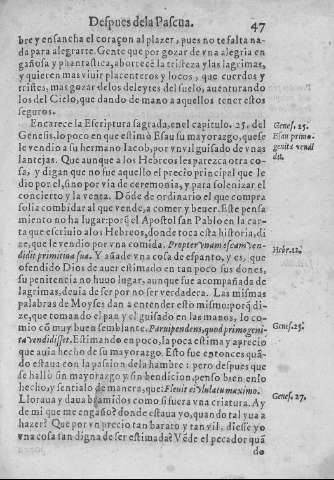 Despues dela Pascua. 47
bre y ensancha el coraçon al plazer, pues no te falta na-
da para alegrarte. Gente que por gozar de vna alegria en-
gañosa y phantastica, aborrece la tristeza y las lagrimas,
y quieren mas viuir placenteros y locos, que cuerdos y
tristes, mas gozar de los deleytes del suelo, auenturando
los del Cielo, que dando de mano a aquellos tener estos
seguros.
Encarece la Escriptura sagrada, en el capitulo. 25. del
Genesis, lo poco en que estimò Esau su mayorazgo, quese
le vendio a su hermano Iacob, por vn vil guisado de vnas
lantejas. Que aunque a los Hebreos les parezca otra co-
sa, y digan que no fue aquello el precio principal que le
dio por el, sino por via de ceremonia, y para solenizar el
concierto y la venta. Dõde de ordinario el que compra
solia combidar al que vende, a comer y beuer. Este pensa
miento no ha lugar: porq̃ el Apostol san Pablo en la car-
ta que escriuio a los Hebreos, donde toca esta historia, di
ze, que le vendio por vna comida. Propter vnam escam ven-
didit primitiua sua. Y añade vna cosa de espanto, y es, que
ofendido Dios de auer estimado en tan poco sus dones,
su penitencia no huuo lugar, aunque fue acompañada de
lagrimas, deuia de ser por no ser verdadera. Las mismas
palabras de Moysen dan a entender esto mismo: porq̃ di-
ze, que tomando el pan y el guisado en las manos, lo co-
mio cõ muy buen semblante. Paruipendens, quod primogeni-
ta vendidisset. Estimando en poco, la poca estima y a precio
que auia hecho de su mayorazgo. Esto fue entonces quã-
do estaua con la passion dela hambre: pero despues que
se hallò sin mayorazgo y sin bendicion, penso bien en lo
hecho, y sentialo de manera, que: Fleuit eiulatu maximo.
Lloraua y daua bramidos como si fuera vna criatura. Ay
de mi que me engaño? donde estaua yo, quando tal vua a
hazer? Que por vn precio tan barato y tan vil, diesse yo
vna cosa tan digna de ser estimada? Vẽde el pecador quã
do
Genes. 25.
Esau primo-
genito vendi
dit.
Hebr. 12.
Genes. 25.
Genes. 27.